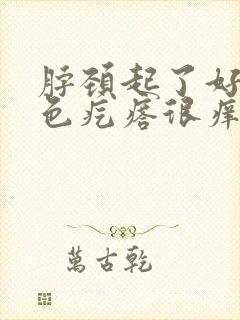 脖颈起了好
色疙瘩很痒
萬古乾